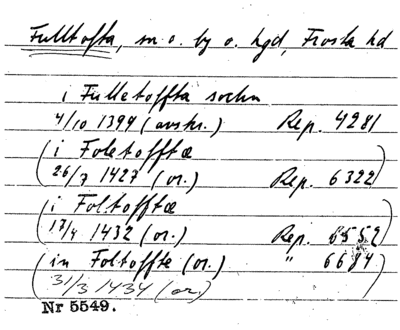 Fulltofta, sn o. by o. hgd, Frosta hd
i Fulletoffta sochn
4/10 1394 (avskr.) Rep. 4281
(i Foletofftæ
26/7 1427 (or.) Rep. 6322)
(i Foltofftæ
17/4 1432 (or.) Rep. 6552
(in Foltoffte (or.) " 6684)
31/3 1434 (or.)
Nr 5549.